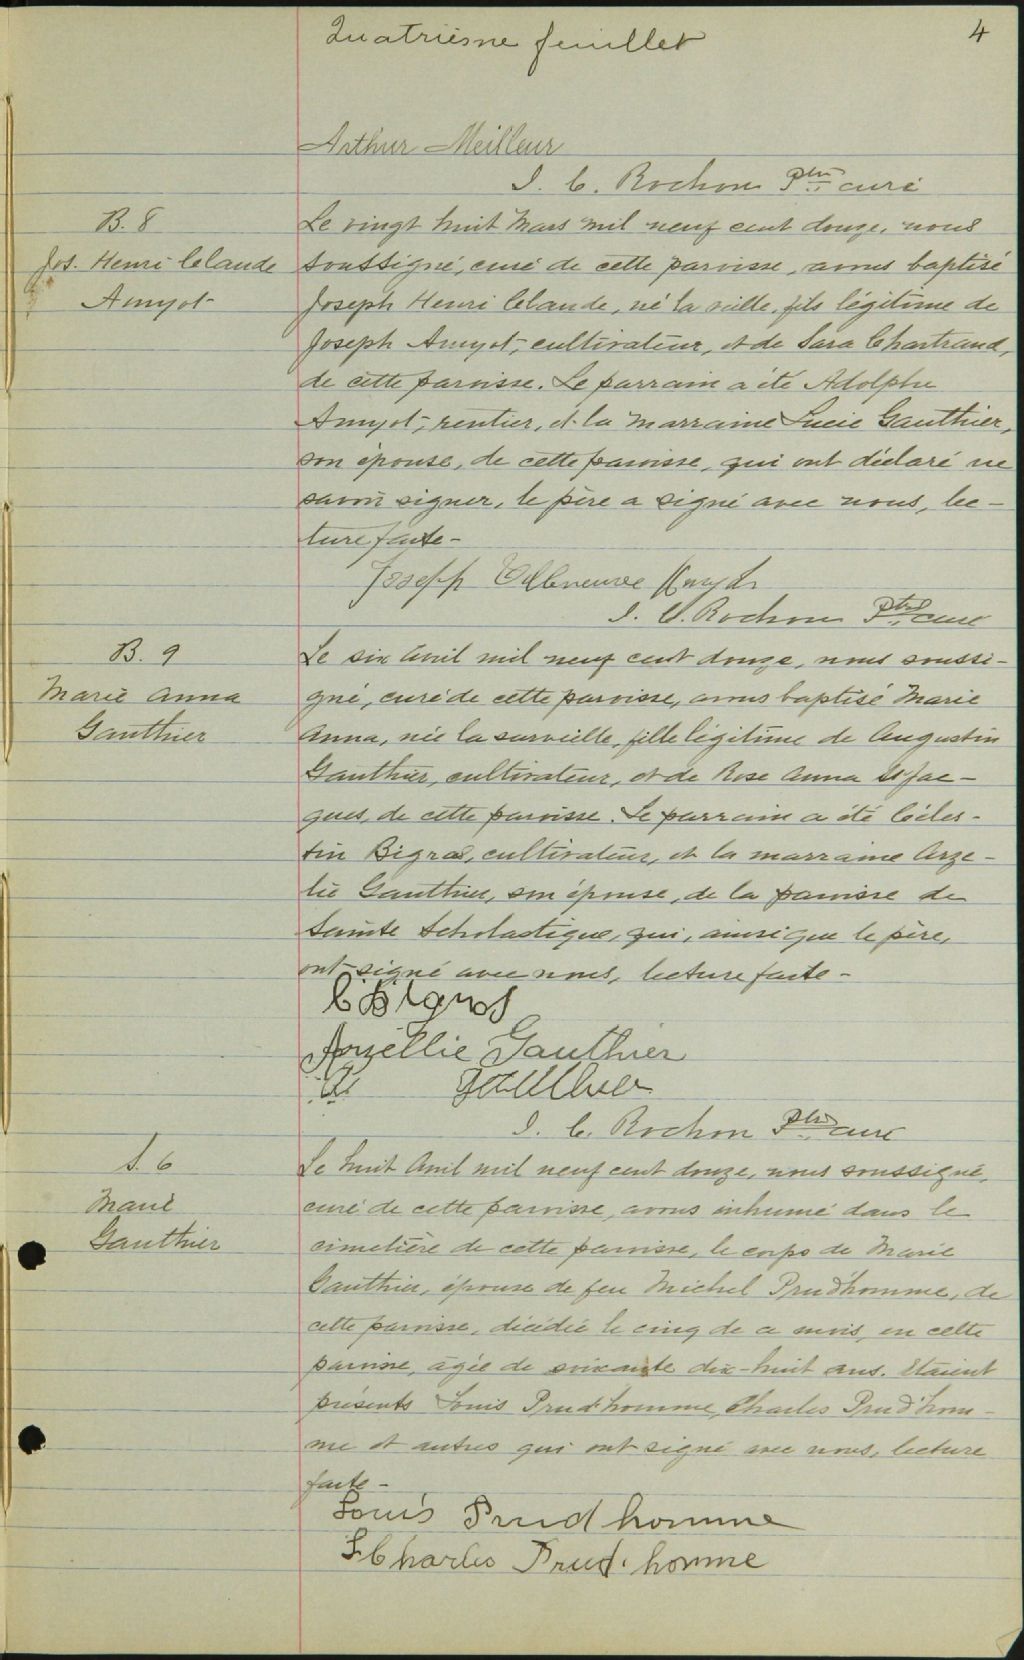 Quatrième feuillet
4
Arthur Meilleur
J. C. Rochon Ptre curé
B. 8
Jos. Henri Claude
Amyot
Le vingt huit Mars mil neuf cent douze, nous
soussigné, curé de cette paroisse, avons baptisé
Joseph Henri Claude, né la veille, fils légitime de
Joseph Amyot, cultivateur, et de Sara Chartrand,
de cette paroisse. Le parrain a été Adolphe
Amyot, rentier, et la marraine Lucie Gauthier,
son épouse, de cette paroisse, qui ont déclaré ne
savoir signer, le père a signé avec nous, lec-
ture faite-
Joseph Amyot
J. C. Rochon Ptre curé
B. 9
Marie Anna
Gauthier
Le six Avril mil neuf cent douze, nous soussi-
gné, curé de cette paroisse, avons baptisé Marie
Anna, née la surveille, fille légitime de Augustin
Gauthier, cultivateur, et de Rose Anna St Jac-
ques, de cette paroisse. Le parrain a été Céles-
tin Bigras, cultivateur, et la marraine Arzé-
lie Gauthier, son épouse, de la paroisse de
Sainte Scholastique, qui, ainsi que le père,
ont signé avec nous, lecture faite-
C Bigras
Arzellie Gauthier
A Gauthier
J. C. Rochon Ptre curé
S. 6
Marie
Gauthier
Le huit Avril mil neuf cent douze, nous soussigné,
curé de cette paroisse, avons inhumé dans le
cimetière de cette paroisse, le corps de Marie
Gauthier, épouse de feu Michel Prud'homme, de
cette paroisse, décédée le cinq de ce mois, en cette
paroisse, âgée de soixante dix-huit ans. Etaient
présents Louis Prud'homme, Charles Prud'hom-
me et autres qui ont signé avec nous, lecture
faite-
Louis Prud homme
L Charles Prud'homme